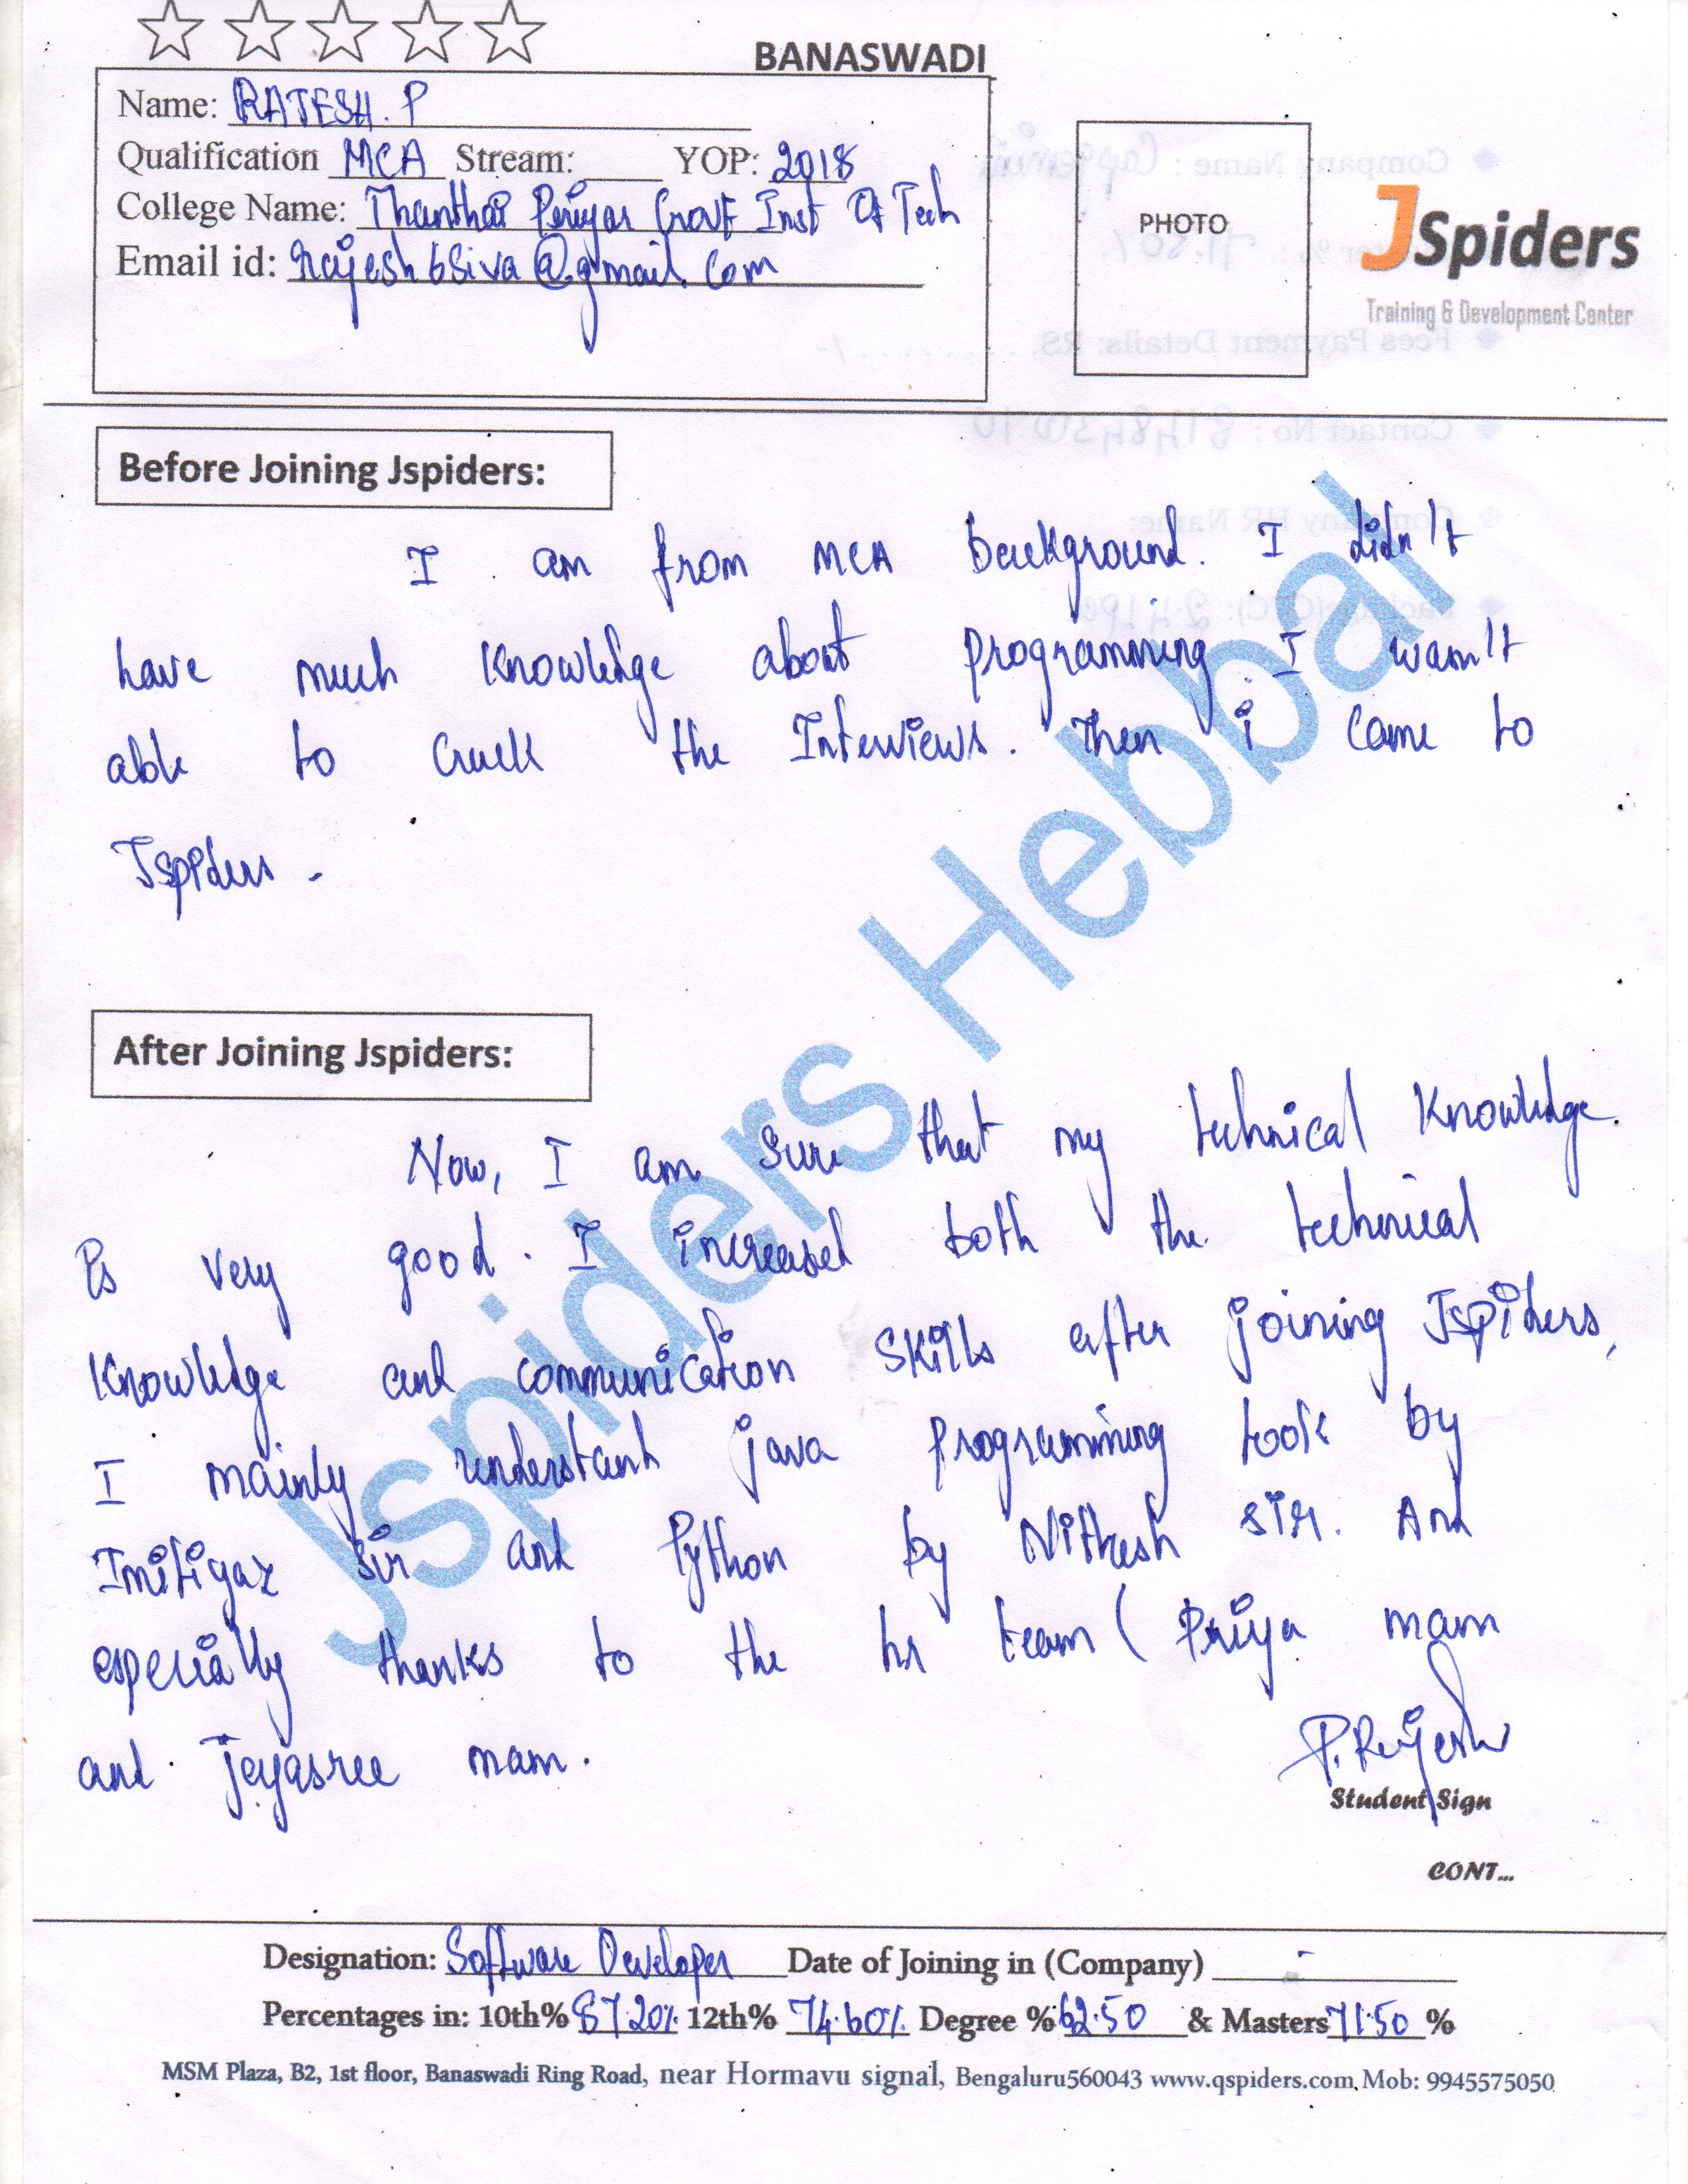 BANASWADI
Name: RAJESH. P
Qualification MCA Stream: YOP: 2018
College Name: Thanthai Periyar Govt Inst Of Tech
Email id: rajesh6siva@gmail.com
PHOTO
JSpiders
Training & Development Center
Before Joining Jspiders:
I am from MCA background. I didn't
have much knowledge about programming. I wasn't
able to crack the Interviews. Then i came to
Jspiders.
After Joining Jspiders:
Now, I am sure that my technical knowledge
is very good. I increased both the technical
knowledge and communication skills after joining Jspiders,
I mainly understant java programming took by
Imitigaz sir and Python by Nithesh sir. And
especially thanks to the hr team ( Priya mam
and Jeyasree mam.
P. Rajesh
Student Sign
CONT...
Jspiders Hebbal
Designation: Software Developer Date of Joining in (Company) -
Percentages in: 10th% 87.20% 12th% 74.60% Degree % 62.50 & Masters 71.50 %
MSM Plaza, B2, 1st floor, Banaswadi Ring Road, near Hormavu signal, Bengaluru560043 www.qspiders.com, Mob: 9945575050